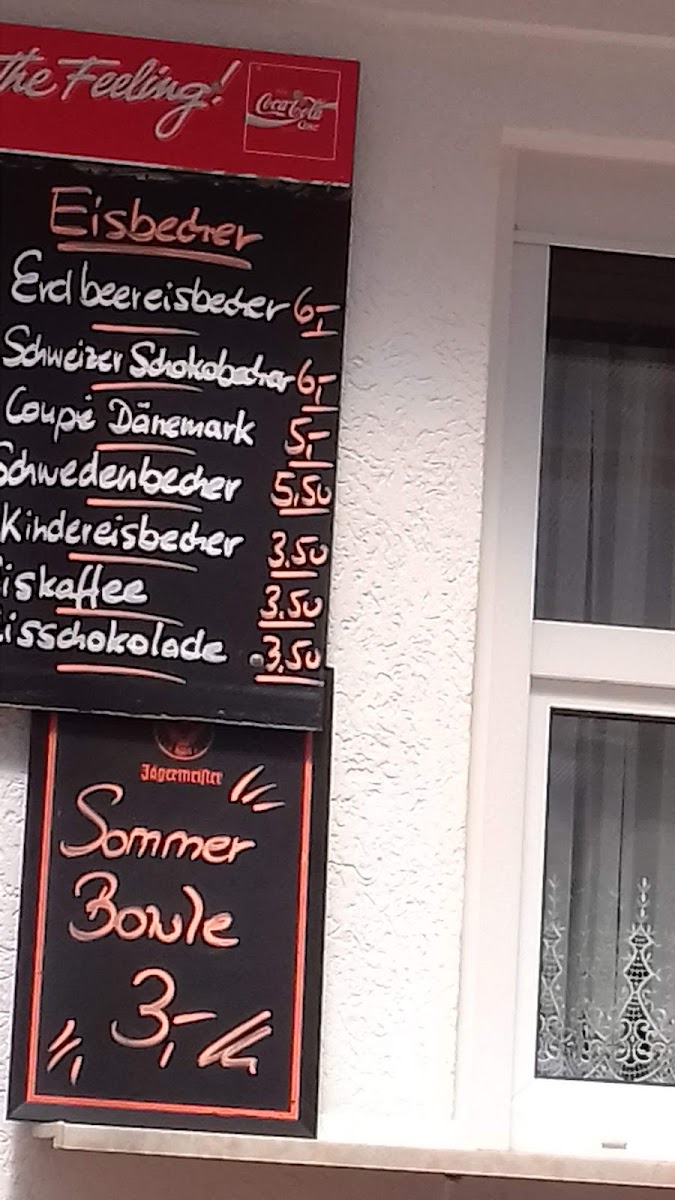 the Feeling!
Coca-Cola
Eisbecher
Erdbeereisbecher 6,-
Schweizer Schokobecher 6,-
Coupé Dänemark 5,-
Schwedenbecher 5,50
Kindereisbecher 3.50
Eiskaffee 3.50
Eisschokolade 3.50
Jägermeister
Sommer
Bowle
3,-